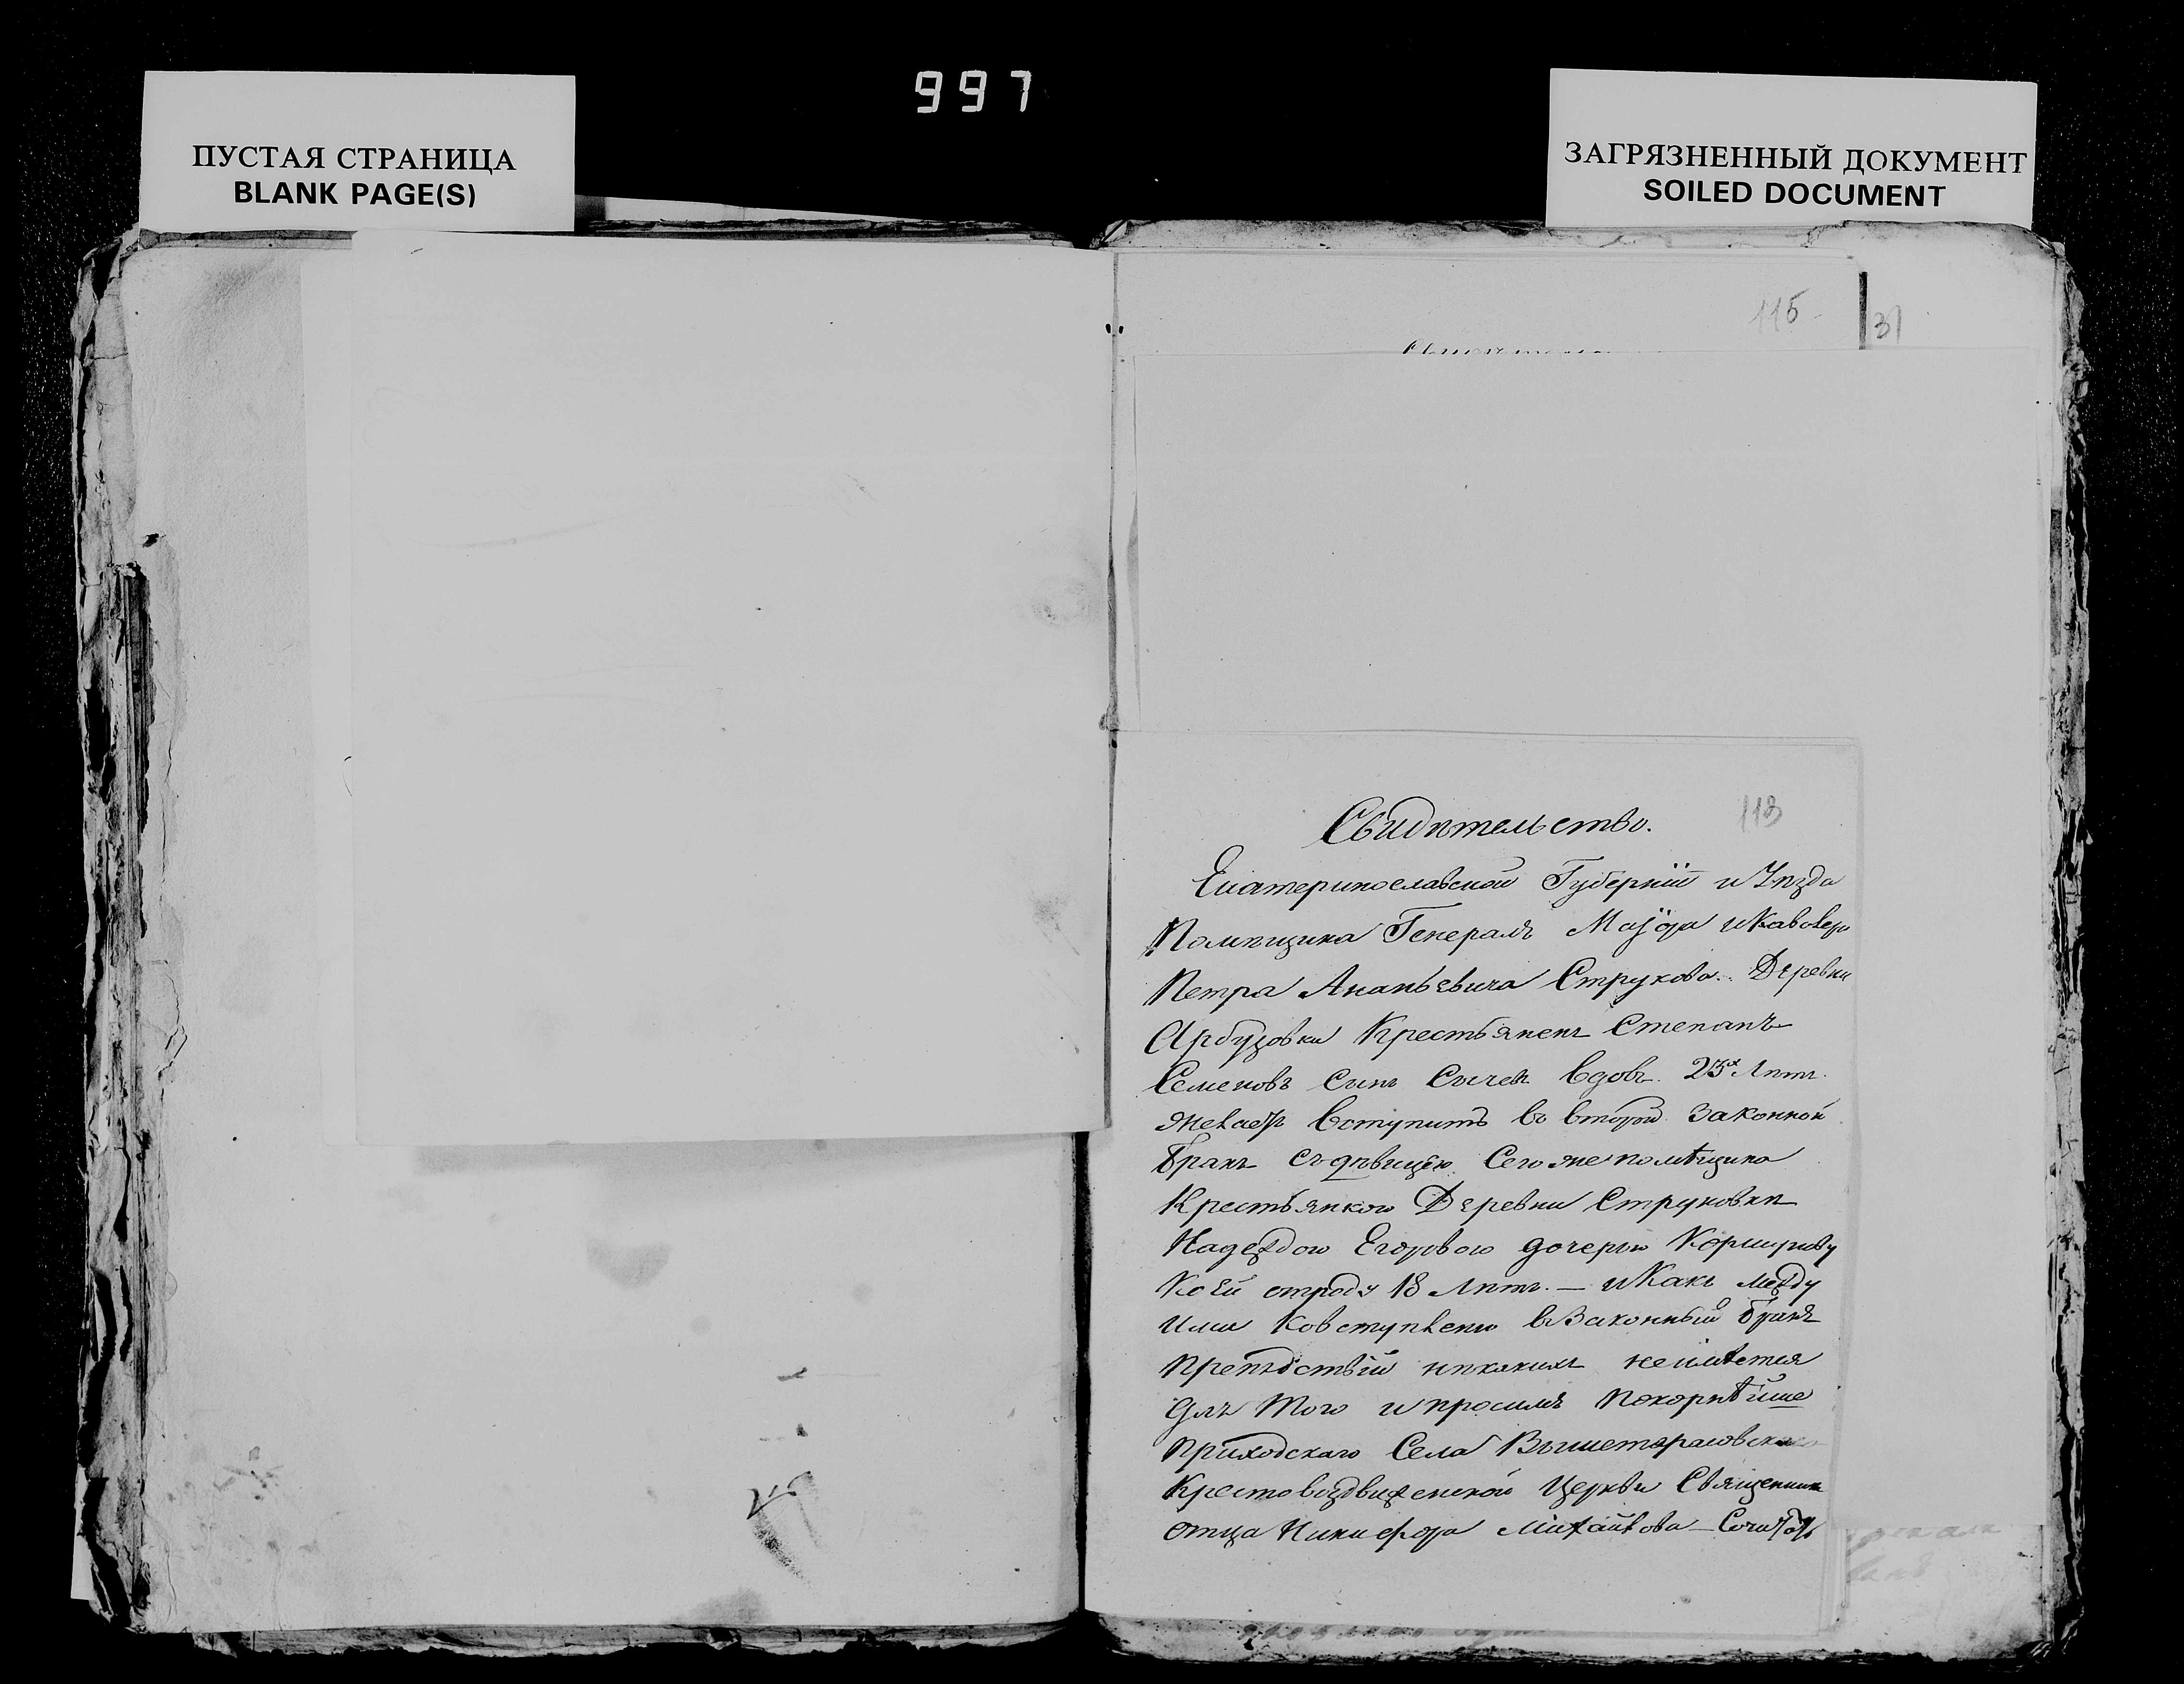 997
ПУСТАЯ СТРАНИЦА
BLANK PAGE(S)
ЗАГРЯЗНЕННЫЙ ДОКУМЕНТ
SOILED DOCUMENT
115
31
113
Свидѣтельство.
Екатеринославской Губернїи и Уѣзда
Помѣщика Генералъ Маіора и Кавалера
Петра Ананьевича Струкова. Деревни
Арбузовки Крестьянинъ Степанъ
Семеновъ сынъ Сычевъ вдовъ 23х Лѣтъ.
желаетъ вступить во второй законной
бракъ съ дѣвицею Сего же помѣщика
Крестьянкою Деревни Струковки
Надеждою Егоровою дочерью
Коей отроду 18 Лѣтъ. — и Какъ между
ими Ковступленію в Законный бракъ
препядствїй никакихъ неимѣется
Длѣ того и просимъ покорнѣйше
приходскаго Села Вышетарасовскаго
Крестовоздвиженской Церкви Священника
отца Никифора Михайлова — Сочитать